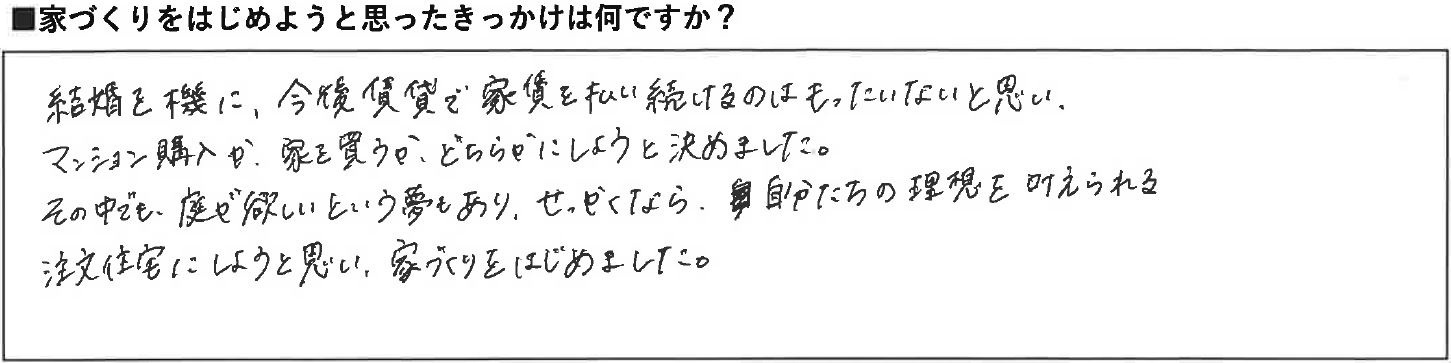 ■家づくりをはじめようと思ったきっかけは何ですか？
結婚を機に、今後賃貸で家賃を払い続けるのはもったいないと思い、
マンション購入か、家を買うか、どちらかにしようと決めました。
その中でも、庭が欲しいという夢もあり、せっかくなら、自分たちの理想を叶えられる
注文住宅にしようと思い、家づくりをはじめました。